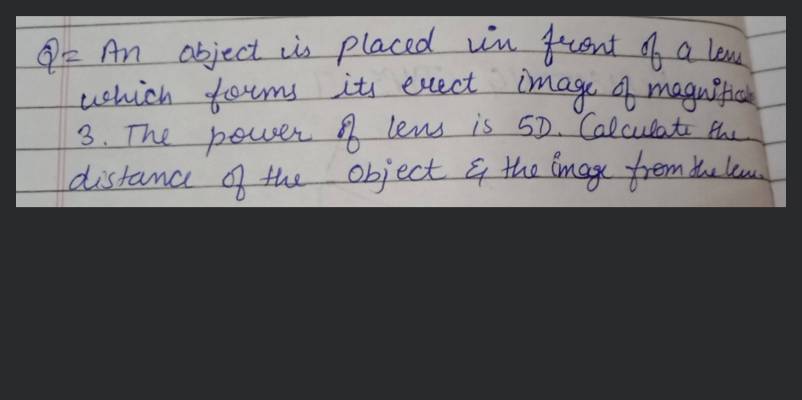 Q= An object is placed in front of a lens
which forms its erect image of magnification
3. The power of lens is 5D. Calculate the
distance of the object & the image from the lens.